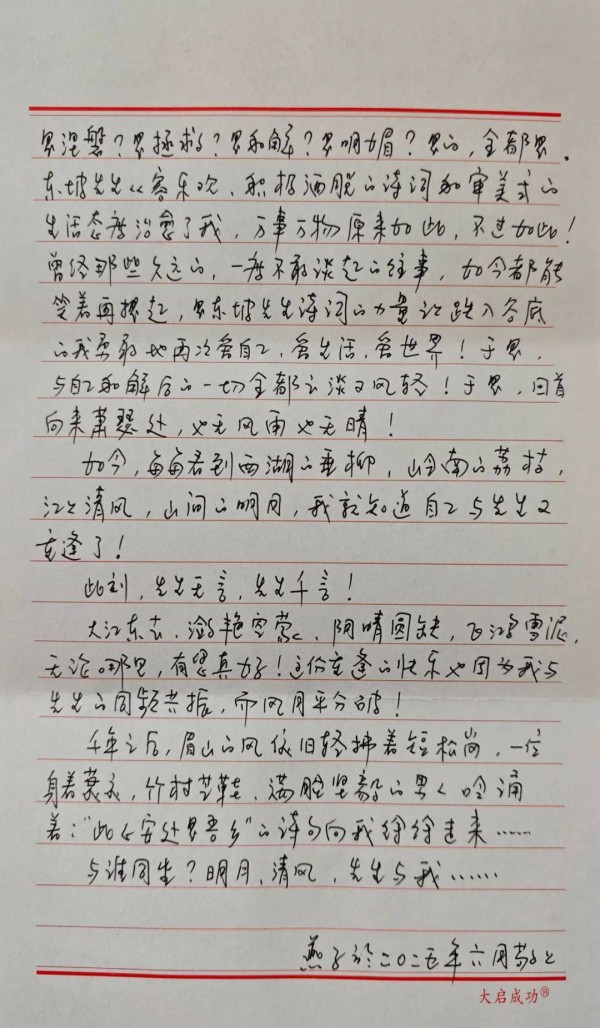 是涅槃？是拯救？是和解？是明媚？是的，全都是。
东坡先生以寄乐欢、积极洒脱的诗词和审美式的
生活态度治愈了我，万事万物原来如此，不过如此！
曾经那些久远的，一度不敢谈起的往事，如今都能
笑着再提起，是东坡先生诗词的力量让跌入谷底
的我勇敢地再次爱自己，爱生活，爱世界！于是，
与自己和解后的一切全都云淡又风轻！于是，回首
向来萧瑟处，也无风雨也无晴！
如今，每每看到西湖的垂柳，岭南的荔枝，
江上清风，山间的明月，我就知道自己与先生又
重逢了！
此刻，先生无言，先生千言！
大江东去、潋滟空蒙、阴晴圆缺，飞鸿雪泥，
无论哪里，有您真好！这份重逢的快乐也因为我与
先生的同频共振，而风月平分破！
千年之后，眉山的风依旧轻拂着短松岗，一位
身着蓑衣，竹杖芒鞋、满脸坚毅的男人吟诵
着：“此心安处是吾乡”的诗句向我徐徐走来……
与谁同坐？明月、清风，先生与我……
燕子於二〇二五年六月敬上
大启成功®